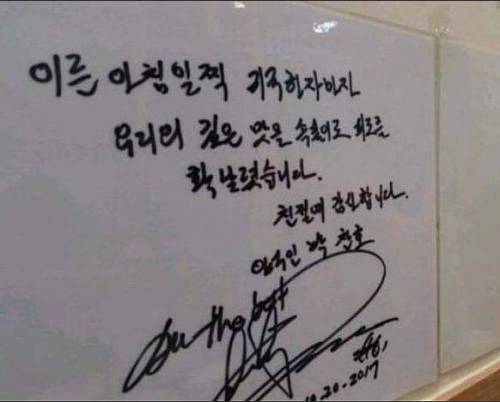 이른 아침일찍 귀국하자마자
우리의 깊은 맛을 피로를
확 날렸습니다.
친절에 감사합니다.
야구인 박 찬호
the best
#61
10.20.2017